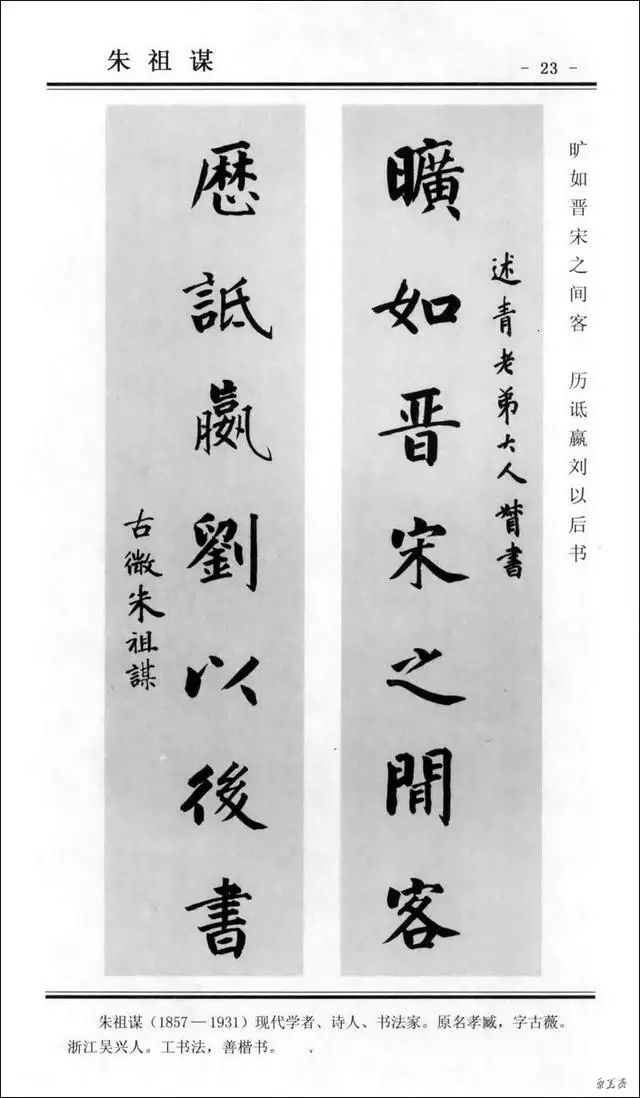 朱祖谋
- 23 -
旷如晋宋之间客 历诋嬴刘以后书
述青老弟大人
書
曠如晉宋之閒客
歷詆嬴劉以後書
古微朱祖謀
朱祖谋（1857—1931）现代学者、诗人、书法家。原名孝臧，字古薇。
浙江吴兴人。工书法，善楷书。